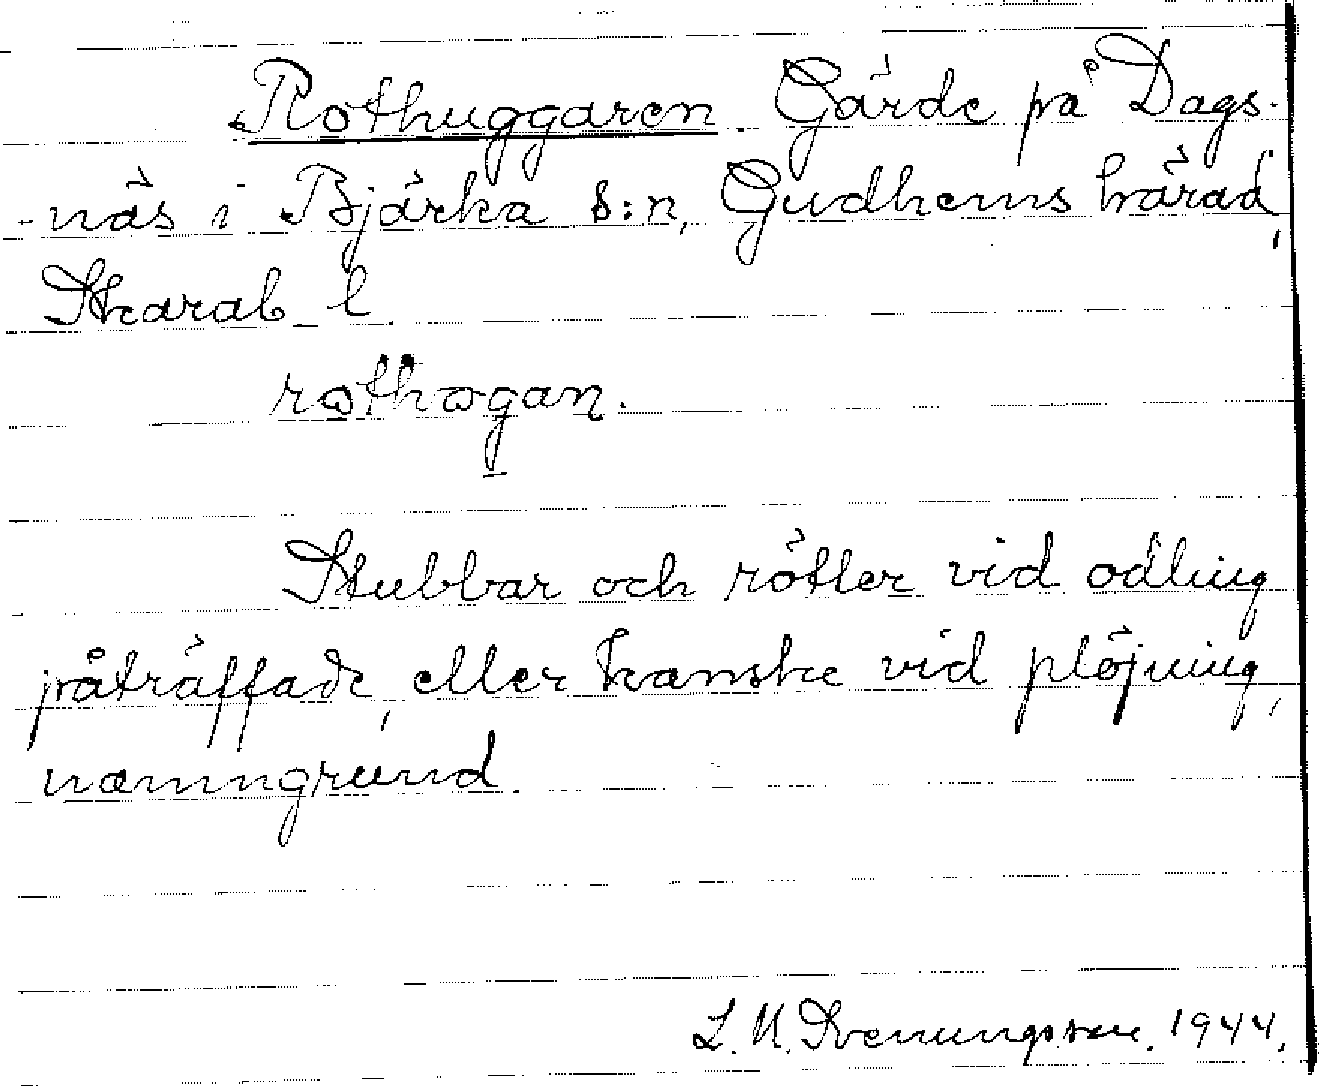 Rothuggaren. Gärde på Dags-
-näs i Bjärka s:n, Gudhems härad,
Skarab. l.
rothogan.
Stubbar och rötter vid odling
påträffade, eller kanske vid plöjning,
namngrund.
L. M. Svenungsson. 1944.